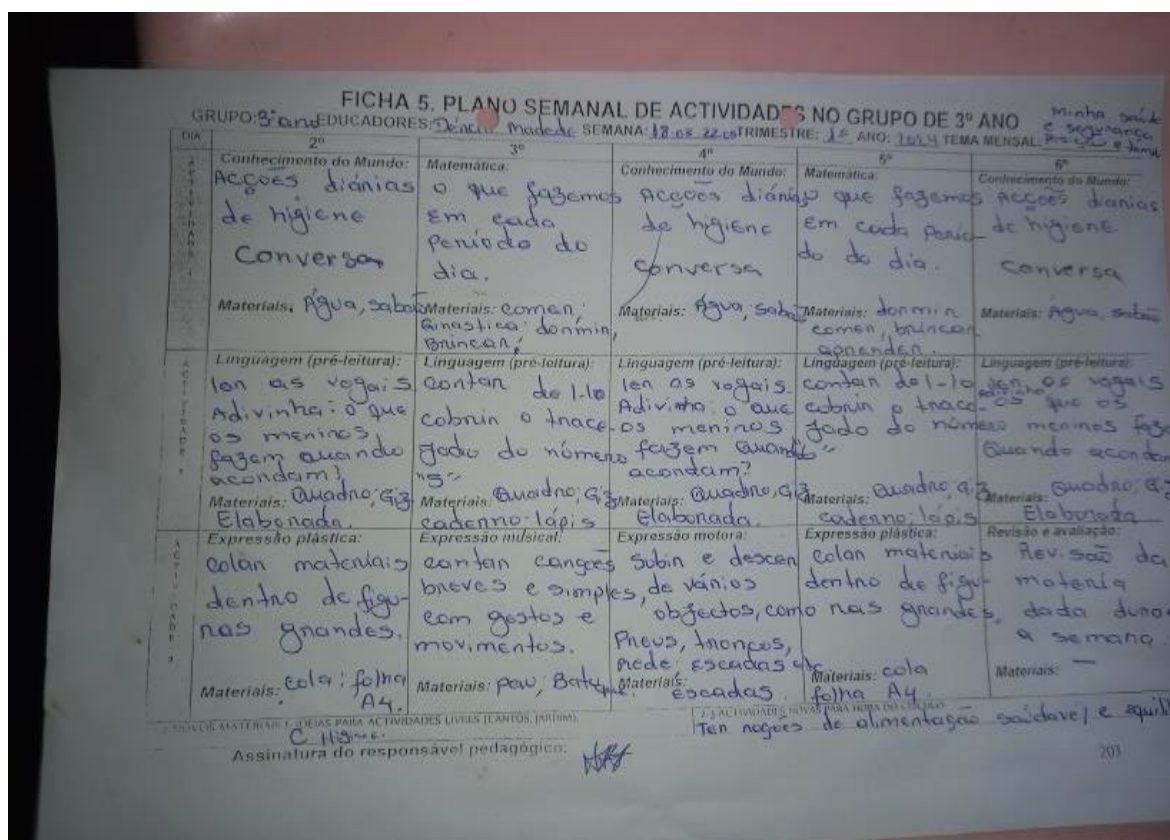 FICHA 5. PLANO SEMANAL DE ACTIVIDADES NO GRUPO DE 3º ANO
GRUPO: 3º ano EDUCADORES: Madede SEMANA: 18.03. TRIMESTRE: 1º ANO: 2024 TEMA MENSAL: minha saúde e segurança
DIA
2º
3º
4º
5º
6º
Conhecimento do Mundo:
Acções diárias
de higiene
Conversa
Materiais. Água, sabão
Matemática:
o que fazemos
Em cada
período do
dia.
Materiais: comer,
Ginastica: dormir,
Brincar,
Conhecimento do Mundo:
Acções diárias
de higiene
Conversa
Materiais: Água, sabão
Matemática:
o que fazemos
Em cada perío-
do do dia.
Materiais: dormir
comer, brincar
aprender.
Conhecimento do Mundo:
Acções diarias
de higiene.
Conversa
Materiais: Água, sabão
Linguagem (pré-leitura):
ler as vogais
Adivinha: o que
os meninos
fazem quando
acordam?
Materiais: Quadro, Giz
Elaborada.
Linguagem (pré-leitura):
contar de 1-10
cobrir o trace-
jado do número
"5"
Materiais: Quadro; Giz
caderno: lápis
Linguagem (pré-leitura):
ler as vogais.
Adivinha: o que
os meninos
fazem Quando
acordam?
Materiais: Quadro, Giz
Elaborada.
Linguagem (pré-leitura):
contar de 1-10
cobrir o trace-
jado do número
Materiais: Quadro, Giz
caderno: lápis
Linguagem (pré-leitura):
ler os vogais
que os
meninos
Quando
Materiais: Quadro, Giz
Elaborada
Expressão plástica:
colar materiais
dentro de figu-
ras grandes.
Materiais: cola: folha
A4.
Expressão musical:
cantar canções
breves e simples,
com gestos e
movimentos.
Materiais: pau,
Expressão motora:
Subir e descer
de vários
objectos, como
Pneus, troncos,
rede, Escadas etc
Materiais:
Escadas.
Expressão plástica:
colar materiais
dentro de figu-
ras grandes,
Materiais: cola
folha A4.
Revisão e avaliação:
Revisão da
materia
dada
a semana
Materiais: —
IDEIAS PARA ACTIVIDADES LIVRES (CANTOS, JARDIM)
2-3 ACTIVIDADES NOVAS PARA HORA DO CÍRCULO
Ter noções de alimentação saúdavel e
Assinatura do responsável pedagógico:
203